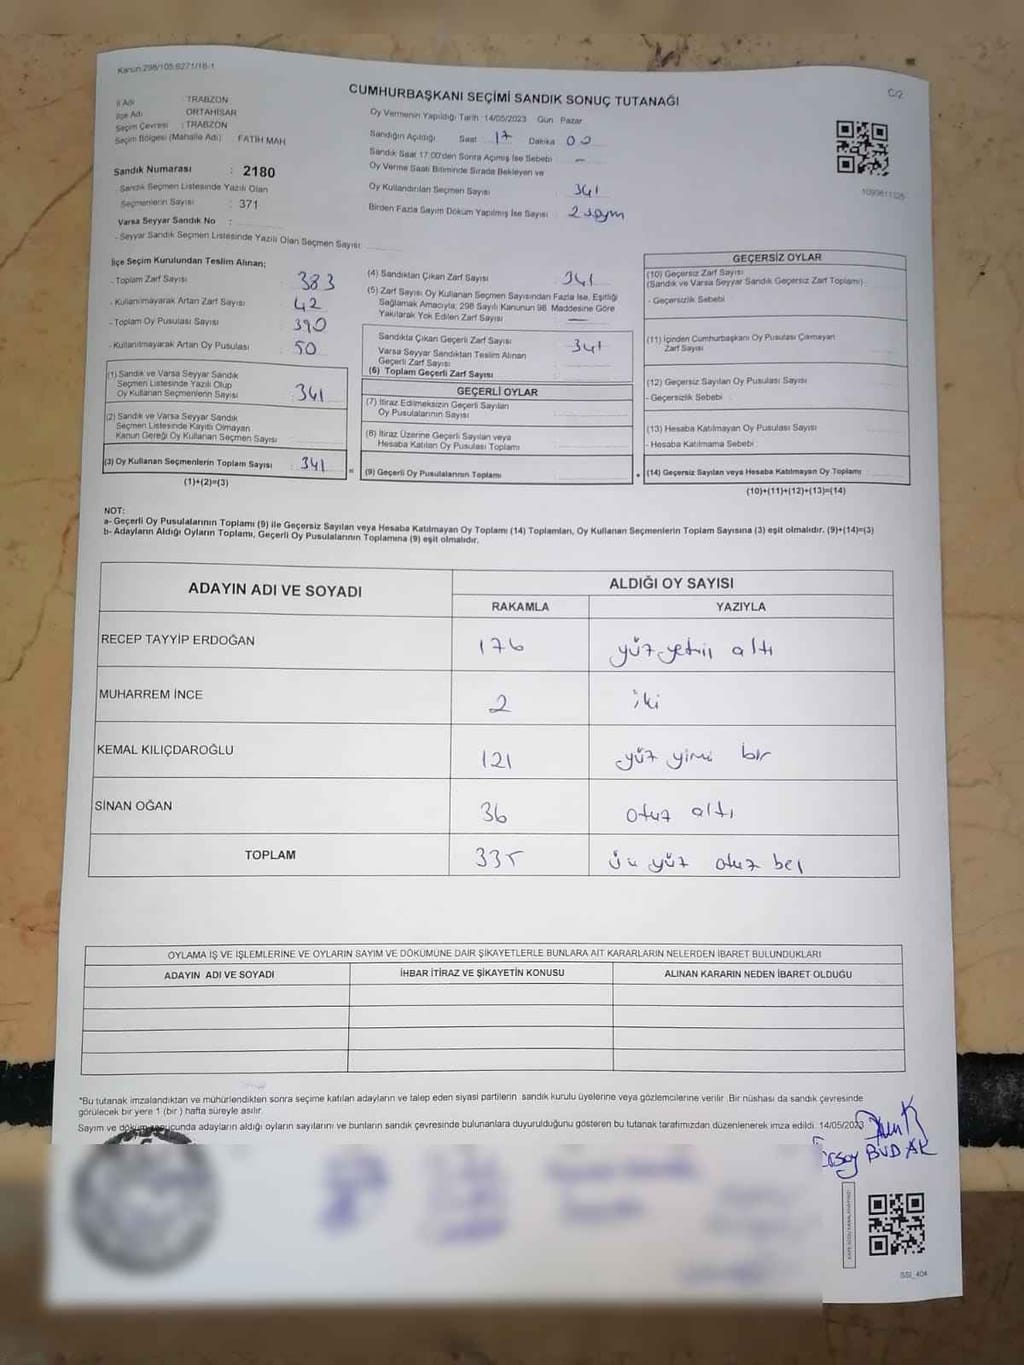 Kanun:298/105,6271/18-1
CUMHURBAŞKANI SEÇİMİ SANDIK SONUÇ TUTANAĞI
C/2
İl Adı : TRABZON
İlçe Adı : ORTAHİSAR
Seçim Çevresi : TRABZON
Seçim Bölgesi (Mahalle Adı) : FATİH MAH
Oy Vermenin Yapıldığı Tarih: 14/05/2023 Gün Pazar
Sandığın Açıldığı Saat 17 Dakika 00
Sandık Saat 17:00'den Sonra Açımış İse Sebebi : -
Oy Verme Saati Bitiminde Sırada Bekleyen ve
Oy Kullandırılan Seçmen Sayısı : 341
Birden Fazla Sayım Döküm Yapılmış İse Sayısı : 2 sayım
Sandık Numarası : 2180
Sandık Seçmen Listesinde Yazılı Olan
Seçmenlerin Sayısı : 371
Varsa Seyyar Sandık No :
Seyyar Sandık Seçmen Listesinde Yazılı Olan Seçmen Sayısı:
İlçe Seçim Kurulundan Teslim Alınan;
- Toplam Zarf Sayısı : 383
- Kullanılmayarak Artan Zarf Sayısı : 42
- Toplam Oy Pusulası Sayısı : 390
- Kullanılmayarak Artan Oy Pusulası : 50
(1) Sandık ve Varsa Seyyar Sandık
Seçmen Listesinde Yazılı Olup
Oy Kullanan Seçmenlerin Sayısı : 341
(2) Sandık ve Varsa Seyyar Sandık
Seçmen Listesinde Kayıtlı Olmayan
Kanun Gereği Oy Kullanan Seçmen Sayısı :
(3) Oy Kullanan Seçmenlerin Toplam Sayısı : 341
(1)+(2)=(3)
(4) Sandıktan Çıkan Zarf Sayısı : 341
(5) Zarf Sayısı, Oy Kullanan Seçmen Sayısından Fazla İse, Eşitliği
Sağlamak Amacıyla; 298 Sayılı Kanunun 98. Maddesine Göre
Yakılarak Yok Edilen Zarf Sayısı : —
Sandıkta Çıkan Geçerli Zarf Sayısı : 341
Varsa Seyyar Sandıktan Teslim Alınan
Geçerli Zarf Sayısı :
(6) Toplam Geçerli Zarf Sayısı :
GEÇERLİ OYLAR
(7) İtiraz Edilmeksizin Geçerli Sayılan
Oy Pusulalarının Sayısı :
(8) İtiraz Üzerine Geçerli Sayılan veya
Hesaba Katılan Oy Pusulası Toplamı :
(9) Geçerli Oy Pusulalarının Toplamı :
GEÇERSİZ OYLAR
(10) Geçersiz Zarf Sayısı
(Sandık ve Varsa Seyyar Sandık Geçersiz Zarf Toplamı) :
- Geçersizlik Sebebi :
(11) İçinden Cumhurbaşkanı Oy Pusulası Çıkmayan
Zarf Sayısı :
(12) Geçersiz Sayılan Oy Pusulası Sayısı :
- Geçersizlik Sebebi :
(13) Hesaba Katılmayan Oy Pusulası Sayısı :
- Hesaba Katılmama Sebebi :
(14) Geçersiz Sayılan veya Hesaba Katılmayan Oy Toplamı :
(10)+(11)+(12)+(13)=(14)
NOT:
a- Geçerli Oy Pusulalarının Toplamı (9) ile Geçersiz Sayılan veya Hesaba Katılmayan Oy Toplamı (14) Toplamları, Oy Kullanan Seçmenlerin Toplam Sayısına (3) eşit olmalıdır. (9)+(14)=(3)
b- Adayların Aldığı Oyların Toplamı, Geçerli Oy Pusulalarının Toplamına (9) eşit olmalıdır.
ADAYIN ADI VE SOYADI ALDIĞI OY SAYISI
RAKAMLA YAZIYLA
RECEP TAYYİP ERDOĞAN 176 yüz yetmiş altı
MUHARREM İNCE 2 iki
KEMAL KILIÇDAROĞLU 121 yüz yirmi bir
SİNAN OĞAN 36 otuz altı
TOPLAM 335 üç yüz otuz beş
OYLAMA İŞ VE İŞLEMLERİNE VE OYLARIN SAYIM VE DÖKÜMÜNE DAİR ŞİKAYETLERLE BUNLARA AİT KARARLARIN NELERDEN İBARET BULUNDUKLARI
ADAYIN ADI VE SOYADI İHBAR İTİRAZ VE ŞİKAYETİN KONUSU ALINAN KARARIN NEDEN İBARET OLDUĞU
*Bu tutanak imzalandıktan ve mühürlendikten sonra seçime katılan adayların ve talep eden siyasi partilerin sandık kurulu üyelerine veya gözlemcilerine verilir. Bir nüshası da sandık çevresinde
görülecek bir yere 1 (bir ) hafta süreyle asılır.
Sayım ve döküm sonucunda adayların aldığı oyların sayılarını ve bunların sandık çevresinde bulunanlara duyurulduğunu gösteren bu tutanak tarafımızdan düzenlenerek imza edildi. 14/05/2023
BUDAK
SSİ_404